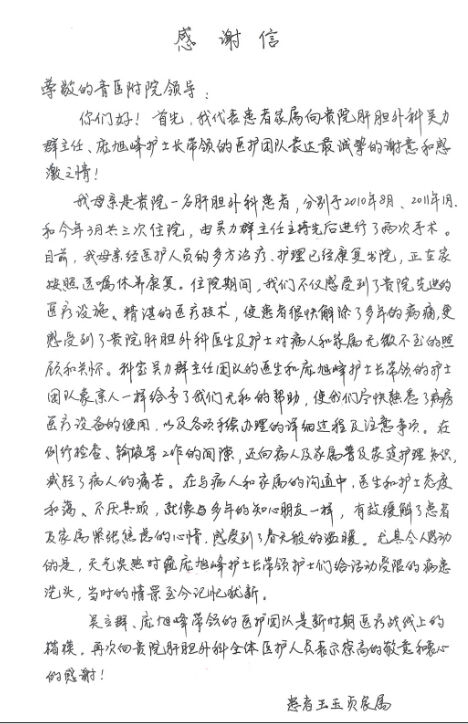 感谢信
尊敬的青医附院领导：
你们好！首先，我代表患者家属向贵院肝胆外科吴力
群主任、庞旭峰护士长带领的医护团队表达最诚挚的谢意和感
激之情！
我母亲是贵院一名肝胆外科患者，分别于2010年8月、2011年1月、
和今年3月共三次住院，由吴力群主任主持先后进行了两次手术。
目前，我母亲经医护人员的多方治疗、护理已经康复出院，正在家
按照医嘱休养康复。住院期间，我们不仅感受到了贵院先进的
医疗设施、精湛的医疗技术，使患者很快解除了多年的病痛，更
感受到了贵院肝胆外科医生及护士对病人和家属无微不至的照
顾和关怀。科室吴力群主任团队的医生和庞旭峰护士长带领的护士
团队象亲人一样给予了我们无私的帮助，使我们尽快熟悉了病房
医疗设备的使用，以及各项手续办理的详细过程及注意事项。在
例行检查、输液等工作的间隙，还向病人及家属普及家庭护理知识，
减轻了病人的痛苦。在与病人和家属的沟通中，医生和护士态度
和蔼、不厌其烦，就像与多年的知心朋友一样，有效缓解了患者
及家属紧张焦虑的心情，感受到了春天般的温暖。尤其令人感动
的是，天气炎热时庞旭峰护士长带领护士们给活动受限的病患
洗头，当时的情景至今记忆犹新。
吴立群、庞旭峰带领的医护团队是新时期医疗战线上的
楷模。再次向贵院肝胆外科全体医护人员表示崇高的敬意和衷心
的感谢！
患者王玉贞家属